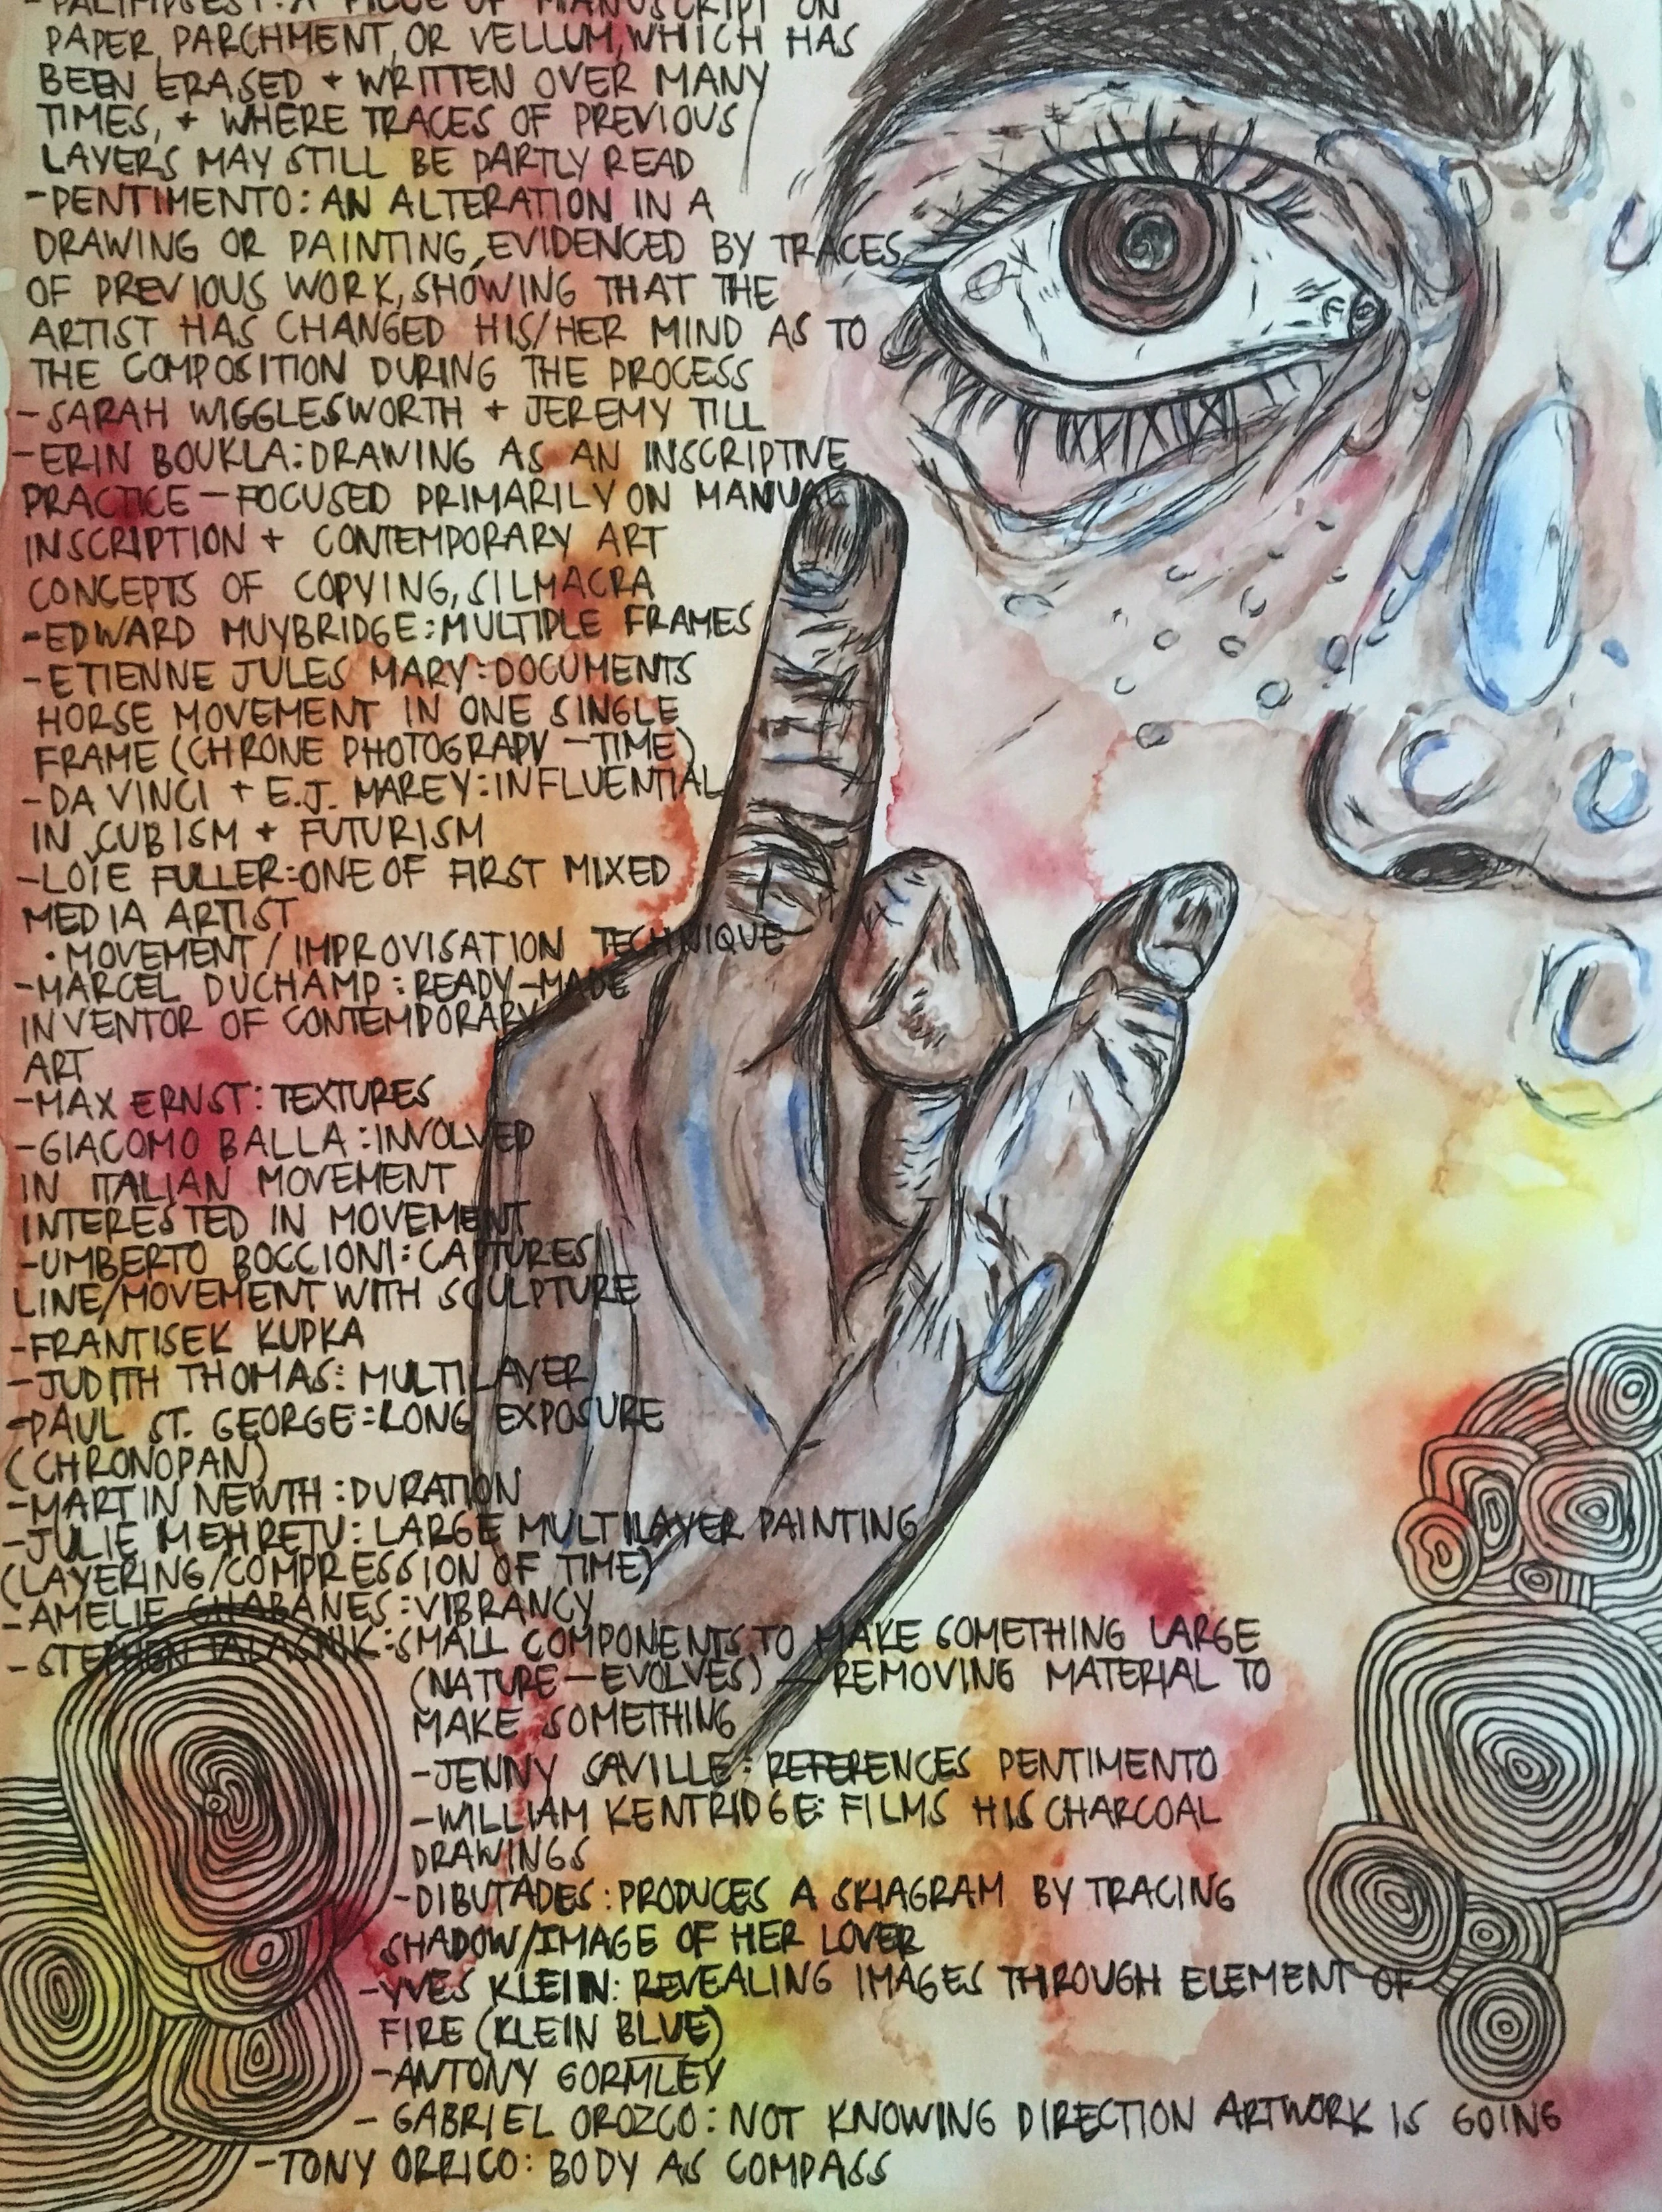 -PALIMPSEST: A PIECE OF MANUSCRIPT ON
PAPER, PARCHMENT, OR VELLUM, WHICH HAS
BEEN ERASED + WRITTEN OVER MANY
TIMES, + WHERE TRACES OF PREVIOUS
LAYERS MAY STILL BE PARTLY READ
-PENTIMENTO: AN ALTERATION IN A
DRAWING OR PAINTING, EVIDENCED BY TRACES
OF PREVIOUS WORK, SHOWING THAT THE
ARTIST HAS CHANGED HIS/HER MIND AS TO
THE COMPOSITION DURING THE PROCESS
-SARAH WIGGLESWORTH + JEREMY TILL
-ERIN BOUKLA: DRAWING AS AN INSCRIPTIVE
PRACTICE - FOCUSED PRIMARILY ON MANUAL
INSCRIPTION + CONTEMPORARY ART
CONCEPTS OF COPYING, SILMACRA
-EDWARD MUYBRIDGE: MULTIPLE FRAMES
-ETIENNE JULES MARY: DOCUMENTS
HORSE MOVEMENT IN ONE SINGLE
FRAME (CHRONE PHOTOGRAPY - TIME)
-DA VINCI + E.J. MAREY: INFLUENTIAL
IN CUBISM + FUTURISM
-LOIE FULLER: ONE OF FIRST MIXED
MEDIA ARTIST
• MOVEMENT / IMPROVISATION TECHNIQUE
-MARCEL DUCHAMP: READY-MADE
INVENTOR OF CONTEMPORARY
ART
-MAX ERNST: TEXTURES
-GIACOMO BALLA: INVOLVED
IN ITALIAN MOVEMENT
INTERESTED IN MOVEMENT
-UMBERTO BOCCIONI: CAPTURES
LINE/MOVEMENT WITH SCULPTURE
-FRANTISEK KUPKA
-JUDITH THOMAS: MULTILAYER
-PAUL ST. GEORGE: LONG EXPOSURE
(CHRONOPAN)
-MARTIN NEWTH: DURATION
-JULIE MEHRETU: LARGE MULTILAYER PAINTING
(LAYERING/COMPRESSION OF TIME)
-AMELIE CHABANES: VIBRANCY
-STEPHEN TALASNIK: SMALL COMPONENTS TO MAKE SOMETHING LARGE
(NATURE - EVOLVES) - REMOVING MATERIAL TO
MAKE SOMETHING
-JENNY SAVILLE: REFERENCES PENTIMENTO
-WILLIAM KENTRIDGE: FILMS HIS CHARCOAL
DRAWINGS
-DIBUTADES: PRODUCES A SKIAGRAM BY TRACING
SHADOW/IMAGE OF HER LOVER
-YVES KLEIN: REVEALING IMAGES THROUGH ELEMENT OF
FIRE (KLEIN BLUE)
-ANTONY GORMLEY
-GABRIEL OROZCO: NOT KNOWING DIRECTION ARTWORK IS GOING
-TONY ORRICO: BODY AS COMPASS